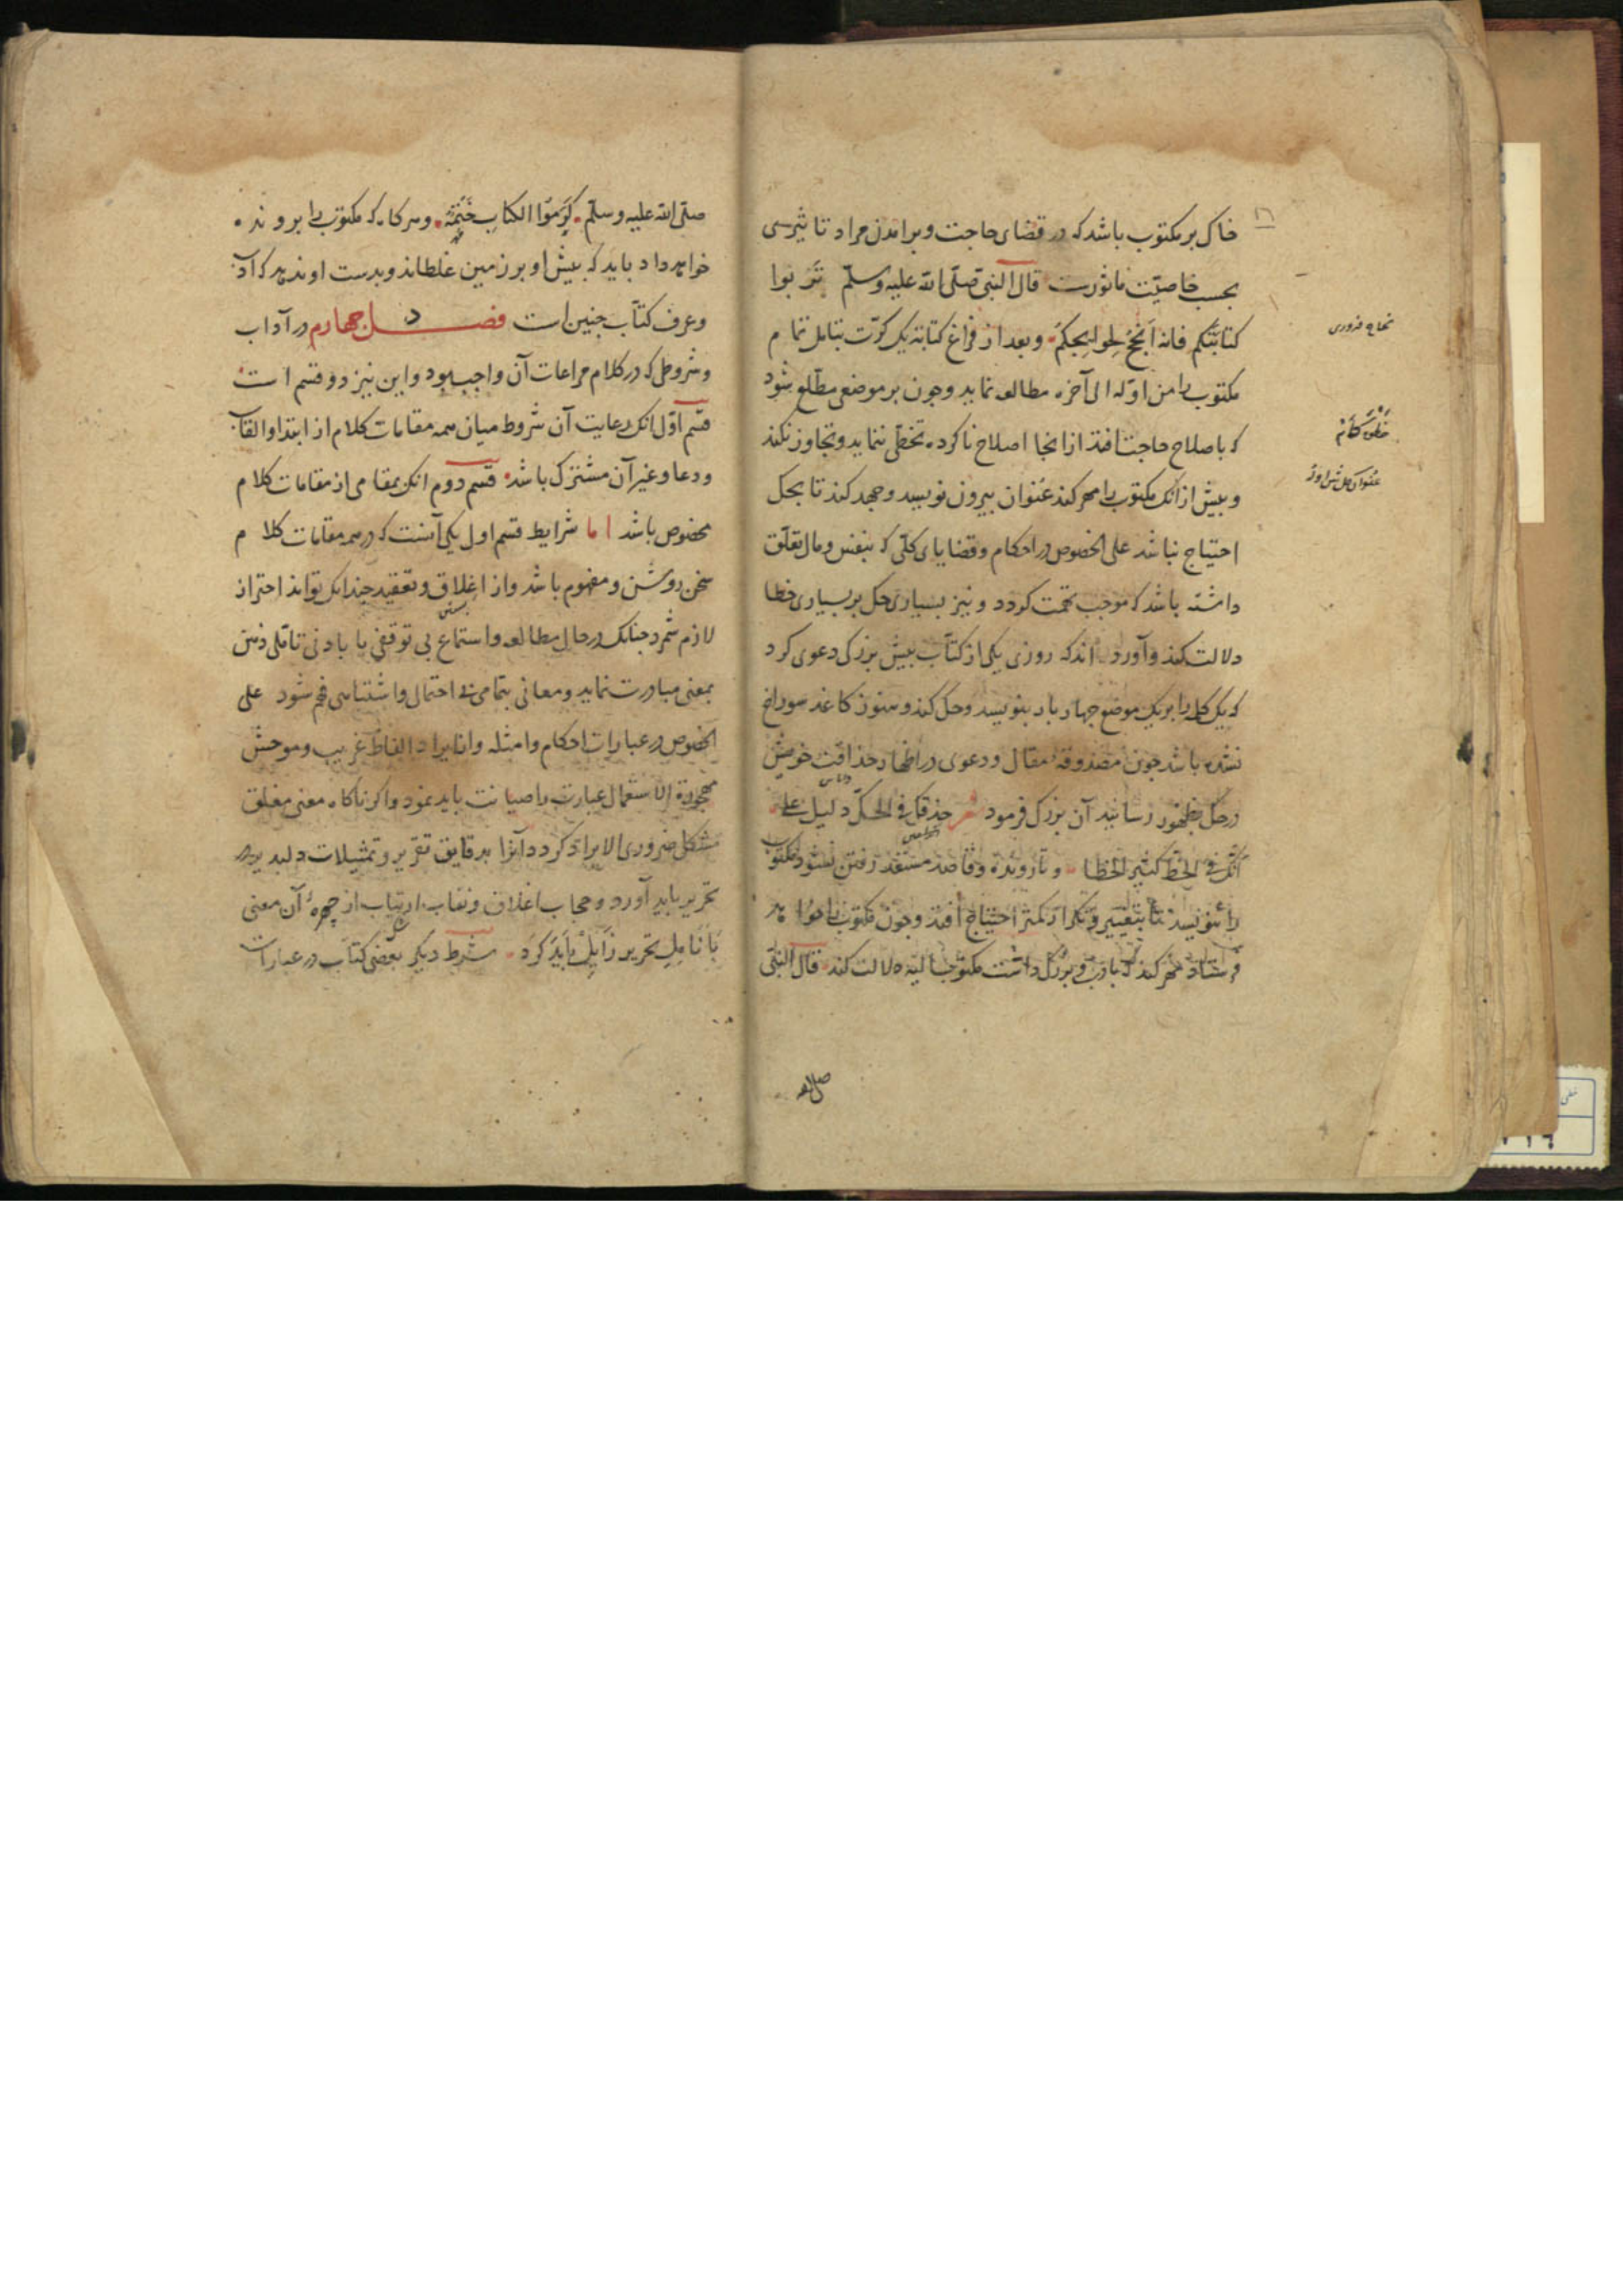 خاک بر مکتوب باشد که در قضای حاجت و برامدن مراد تاثیری
بحسب خاصیت ماثورست قال النبی صلی الله علیه وسلم تربوا
کتابتکم فانه انجح لحوایجکم و بعد از فراغ کتابة یک کرت بتامل تمام
مکتوب را من اوله الی آخره مطالعه نماید و چون بر موضعی مطلع شود
که باصلاح حاجت افتد ازانجا اصلاح ناکرده تخطی ننماید و تجاوز نکند
و بیش ازانک مکتوب را مهر کند عنوان بیرون نویسد و جهد کند تا بحک
احتیاج نباشد علی الخصوص در احکام و قضایای کلی که بنفس و مال تعلق
داشته باشد که موجب تهمت کردد و نیز بسیاری حک بر بسیاری خطا
دلالت کند و آورده اند که روزی یکی از کتاب بیش بزرکی دعوی کرد
که یک کلمه را بر یک موضع چهار بار بنویسد و حک کند و هنوز کاغذ سوراخ
نشده باشد چون مصدوقه مقال و دعوی در اظهار حذاقت خویش
در حک بظهور رسانید آن بزرک فرمود شعر حذقک فی الحک دلیل علی
انک فی الخط کثیر الخطا و تا رونده و قاصد مستعد رفتن نشود مکتوب
را ننویسد تا بتغییر و تکرار کمتر احتیاج افتد و چون مکتوب را خواهد
فرستاد مهر کند که بادب و بزرک داشت مکتوب الیه دلالت کند قال النبی
صلی الله
صلی الله علیه وسلم کرموا الکتاب ختمه و هرکاه که مکتوب را برونده
خواهد داد باید که بیش او بر زمین غلطاند و بدست او ندهد که ادب
و عرف کتاب چنین است فصل چهارم در آداب
و شروطی که در کلام مراعات آن واجب بود و این نیز دو قسم است
قسم اول انک رعایت آن شروط میان همه مقامات کلام از ابتدا و القاب
و دعا و غیر آن مشترک باشد قسم دوم انک بمقامی از مقامات کلام
مخصوص باشد اما شرایط قسم اول یکی آنست که در همه مقامات کلام
سخن روشن و مفهوم باشد و از اغلاق و تعقید چندانک تواند احتراز
لازم شمرد چنانک در حال مطالعه و استماع بی توقفی یا بادنی تاملی ذهن
بمعنی مبادرت نماید و معانی بتمامی بی احتمال و اشتباهی فهم شود علی
الخصوص در عبارات احکام و امثله و از ایراد الفاظ غریب و موحش
مهجورة الاستعمال عبارت را صیانت باید نمود و اکر ناکاه معنی مغلق
مشکل ضروری الایراد کردد آنرا بدقایق تقریر و تمثیلات دلپذیر در
تحریر باید آورد و حجاب اغلاق و نقاب ارتیاب از چهره آن معنی
بانامل تحریر زایل باید کرد شرط دیکر بعضی کتاب در عبارات